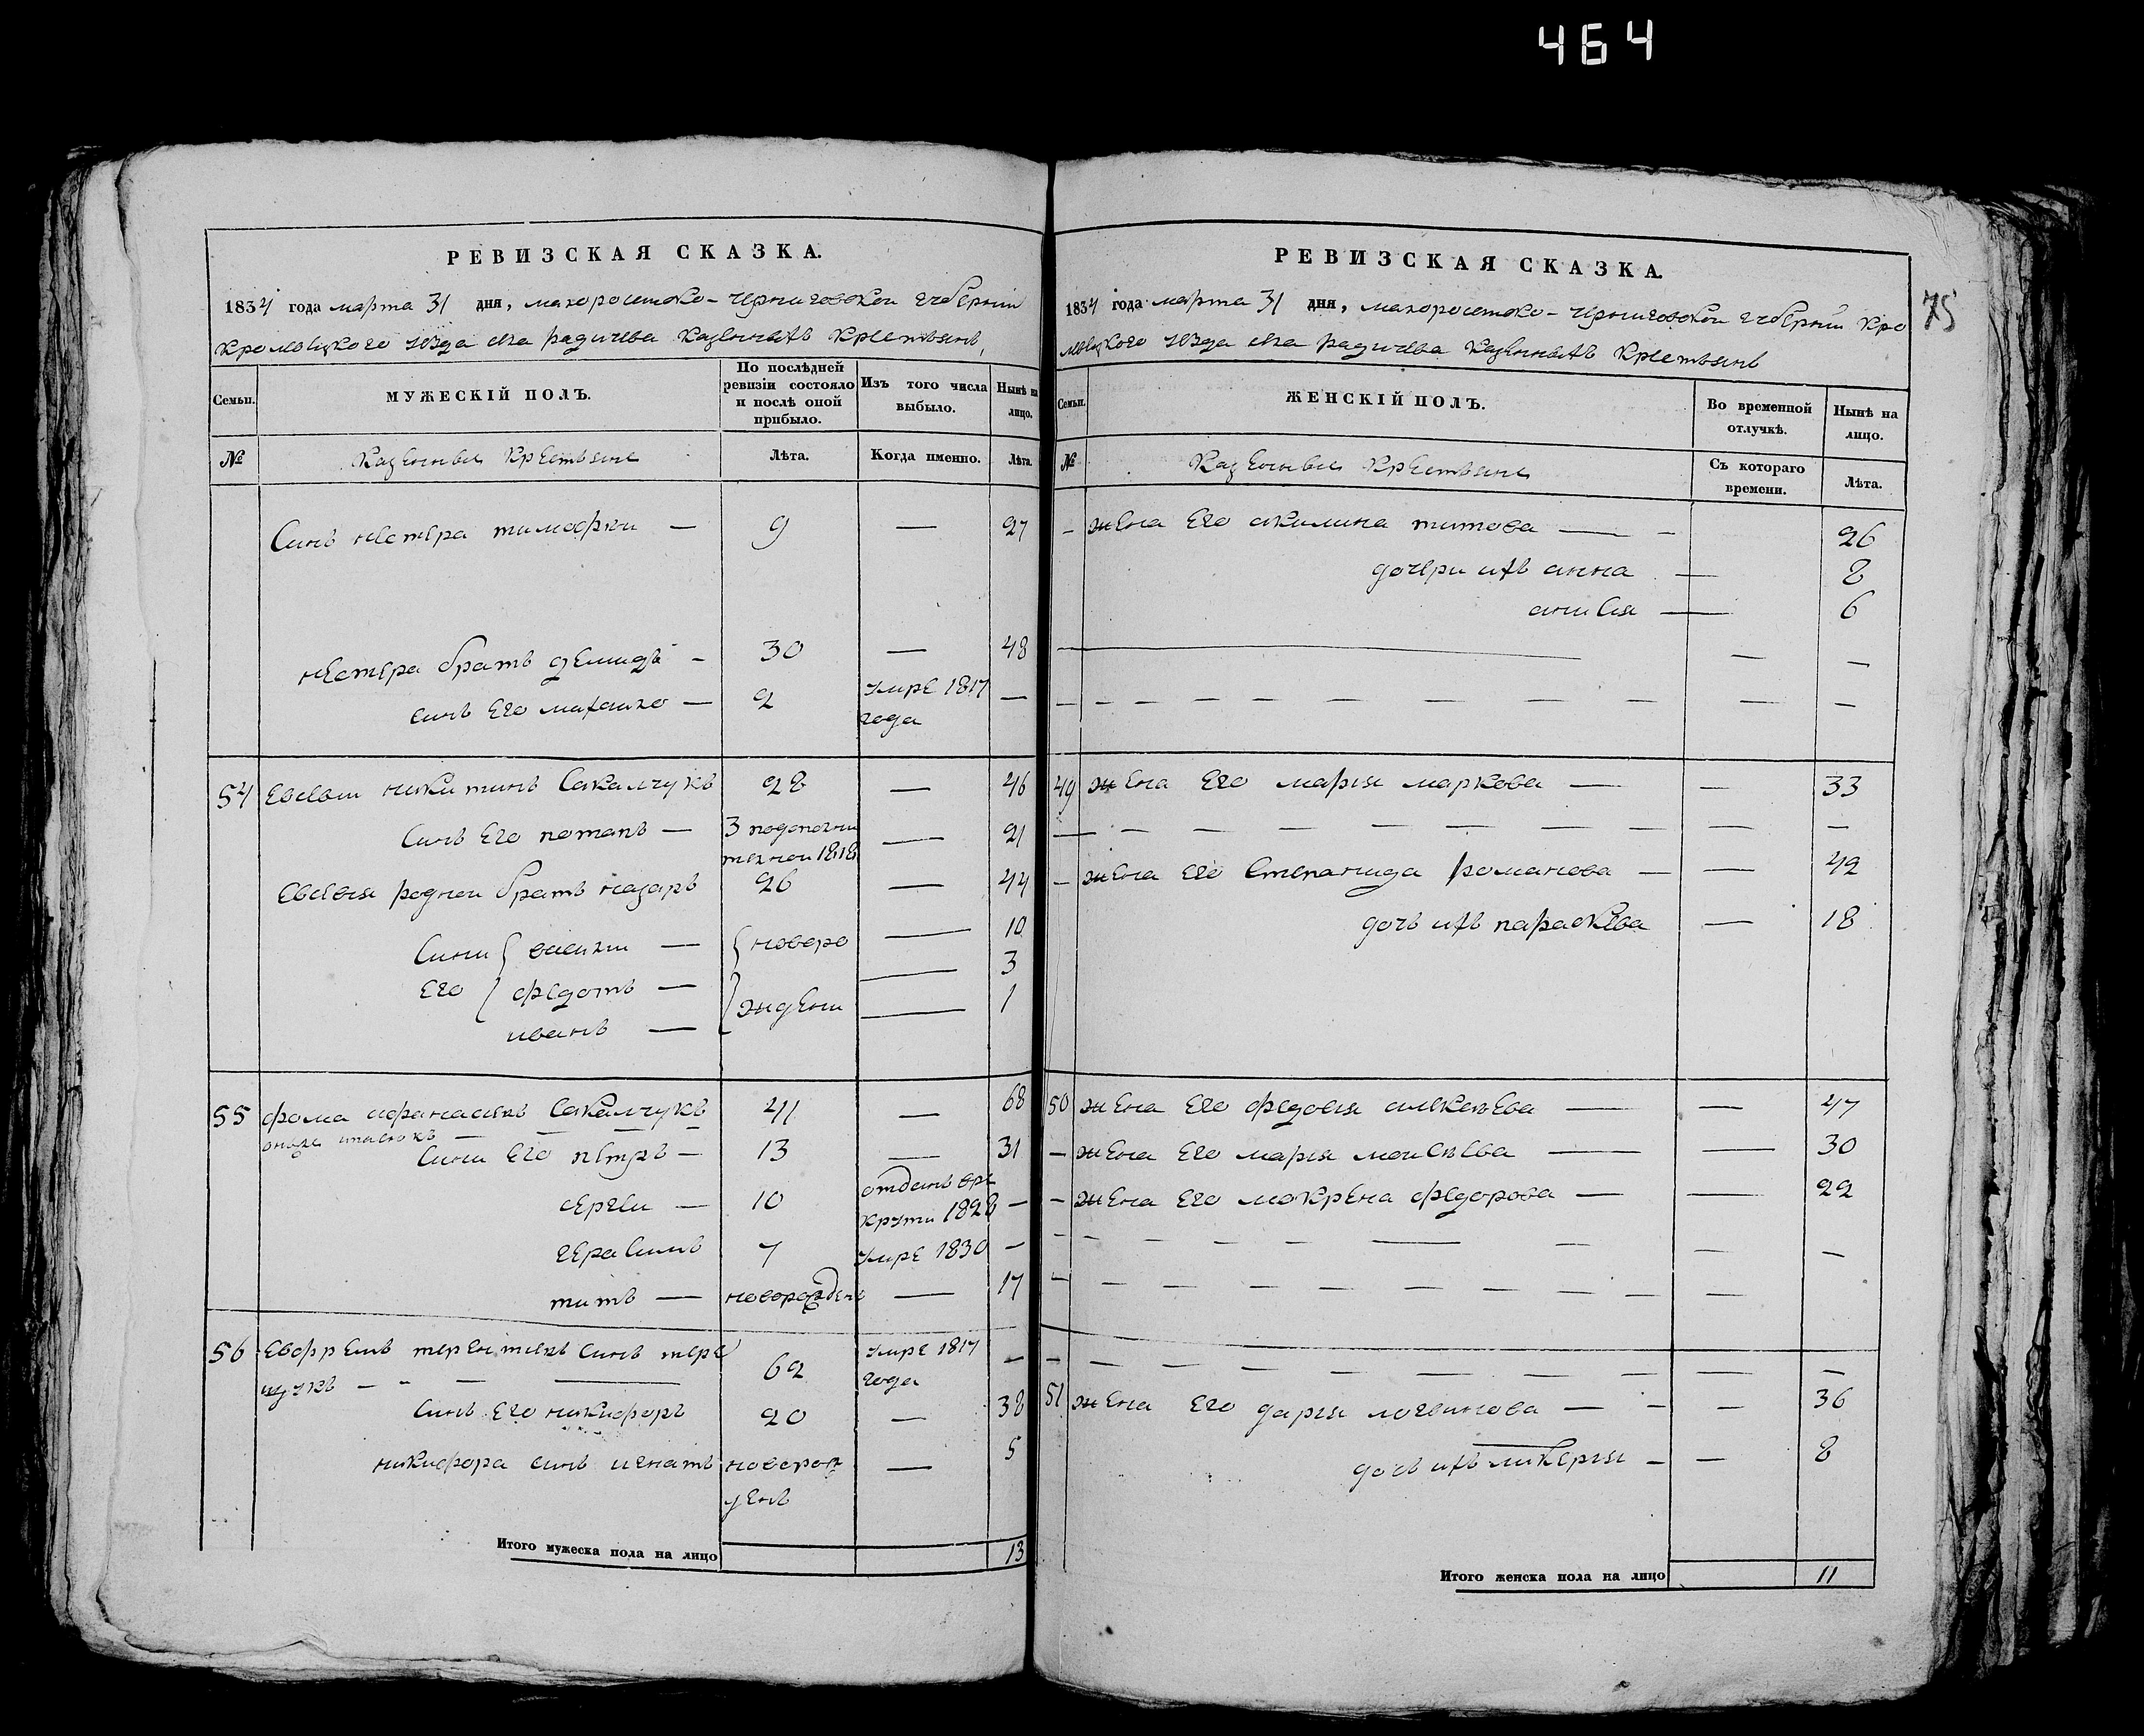 464
РЕВИЗСКАЯ СКАЗКА.
1834 года марта 31 дня, малоросейско-Черниговской губернии
Кролевецкого уезда села радичева казенныхъ крестьянъ,
Семьи. МУЖЕСКІЙ ПОЛЪ. По послѣдней ревизіи состояло и послѣ оной прибыло. Изъ того числа выбыло. Нынѣ на лицо.
№ Казенные крестьяне Лѣта. Когда именно. Лѣта.
Синъ нестера тимофеи — 9 — 27
нестера братъ демидъ — 30 — 48
синъ его михаило — 2 умре 1817 года —
54 Евсевии никитинъ Сакалчукъ 28 — 46
Синъ его потапъ — 3 1818 — 21
Евсевия роднои братъ назаръ 26 — 44
Сини его { василии — { новоро — 10
федотъ — — 3
иванъ — } ждени — 1
55 фома афанасиевъ Сакалчукъ 41 — 68
Сини его петръ — 13 — 31
сергеи — 10 отданъ врекрути 1828 —
герасимъ 7 умре 1830 —
титъ — новорожденъ — 17
56 Евфремъ терентиевъ Синъ тере
щукъ — — — 62 умре 1817 года —
Синъ его никифоръ 20 — 38
никифора синъ игнатъ новорожденъ — 5
Итого мужеска пола на лицо 13
75
РЕВИЗСКАЯ СКАЗКА.
1834 года марта 31 дня, малоросейско-Черниговской губернии Кро
левецкого уезда села радичева казенныхъ крестьянъ
Семьи. ЖЕНСКІЙ ПОЛЪ. Во временной отлучкѣ. Нынѣ на лицо.
№ Казенные крестьяне Съ котораго времени. Лѣта.
— жена его акилина титова — — 26
дочери ихъ анна — 8
анися — 6
49 жена его мария маркова — — 33
— жена его степанида романова — — 42
дочь ихъ параскева — 18
50 жена его федосия алексеева — — 47
— жена его мария моисеева — — 30
— жена его мокрена федорова — — 22
51 жена его дария логвинова — — 36
дочь ихъ ликерия — — 8
Итого женска пола на лицо 11